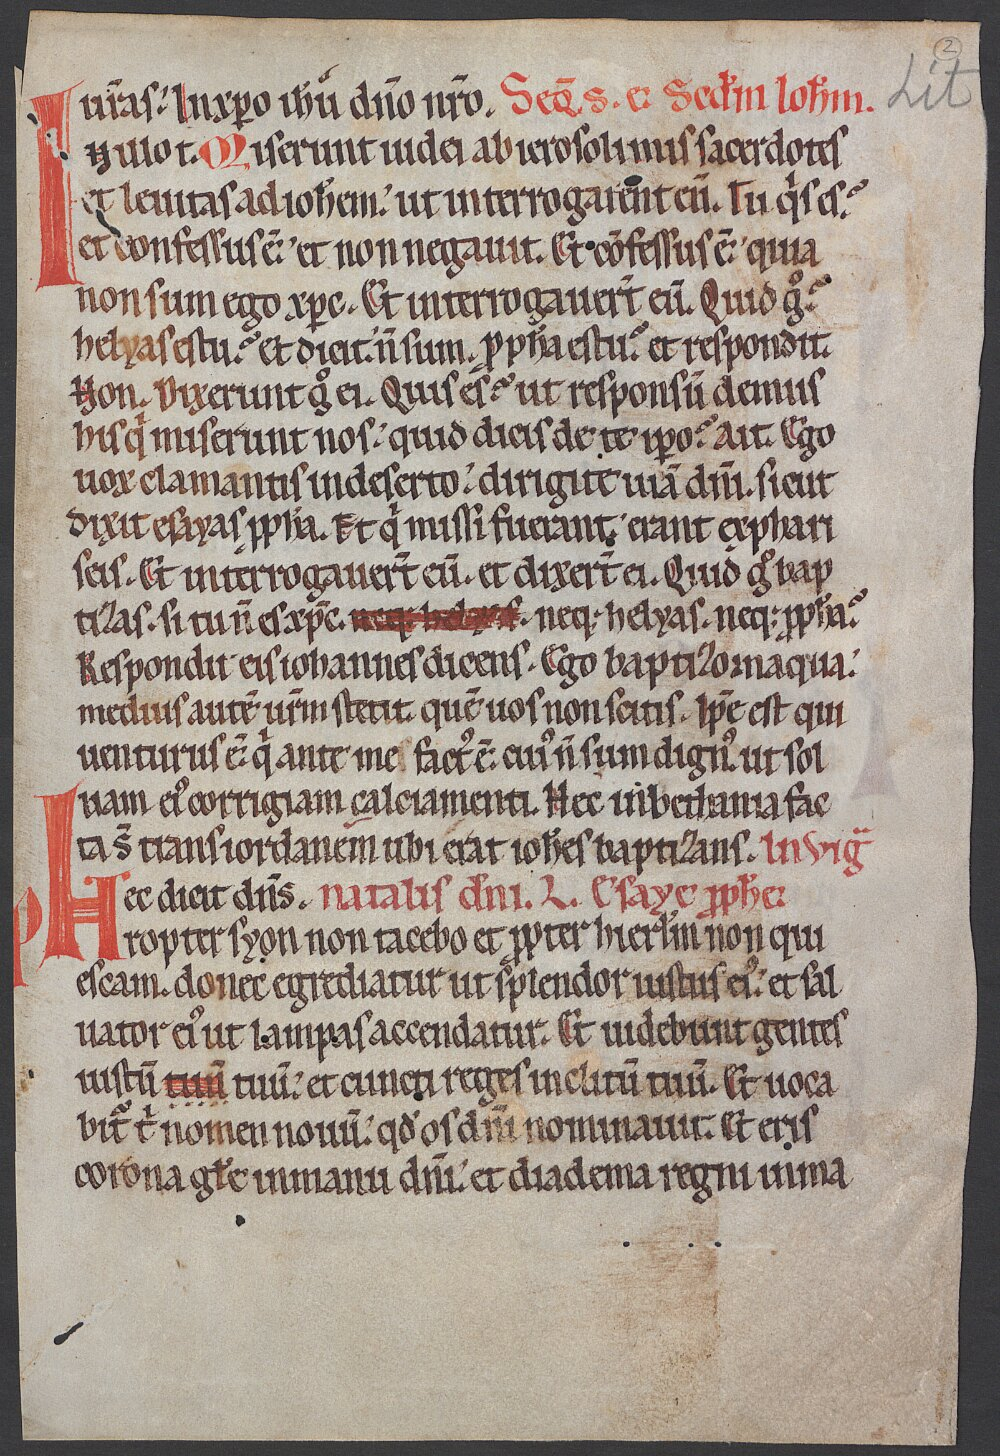 2
Lit
ur̄as. In xp̄o ihū dn̄o nr̄o. Seq̄. s. e. Scd̄m Ioh̄m.
In illo t. Miserunt iudei ab ierosolimis sacerdotes
et leuitas ad ioh̄em. ut interrogarent eū. Tu qͥs es?
et confessus ē. et non negauit. Et cōfessus ē. quia
non sum ego xp̄c. Et interrogauer̄t eū. Quid gͦ?
helyas es tu? Et dicit. n̄ sum. ꝓph̄a es tu? et respondit.
Non. Dixerunt gͦ ei. Quis es? ut responsū demus
his qͥ miserunt nos. quid dicis de te ip̄o? Ait. Ego
uox clamantis in deserto. dirigite uiā dn̄i. sicut
dixit esayas ꝓph̄a. Et qͥ missi fuerant. erant ex phari
seis. Et interrogauer̄t eū. et dixer̄t ei. Quid gͦ bap
tizas. si tu n̄ es xp̄c. neq; helyas. neq; helyas. neq; ꝓph̄a?
Respondit eis iohannes dicens. Ego baptizo in aqua.
medius autē ur̄m stetit. quē uos non scitis. Ip̄e est qui
uenturus ē. qͥ ante me factꝰ ē. cuiꝰ n̄ sum dignꝰ. ut sol
uam eiꝰ corrigiam calciamenti. Hec in bethania fac
ta s̄ trans iordanem ubi erat ioh̄es baptizans. In viḡ
Hec dicit dn̄s. natalis dn̄i. L. Esaye ꝓphe
Propter syon non tacebo et ꝓpter hierl̄m non qui
escam. donec egrediatur ut splendor iustus eiꝰ. et sal
uator eiꝰ ut lampas accendatur. Et uidebunt gentes
iustū tuū tuū. et cuncti reges inclitū tuū. Et uoca
bit̄ tͥ nomen nouū. qd̄ os dn̄i nominauit. Et eris
corona gl̄e in manu dn̄i. et diadema regni in ma